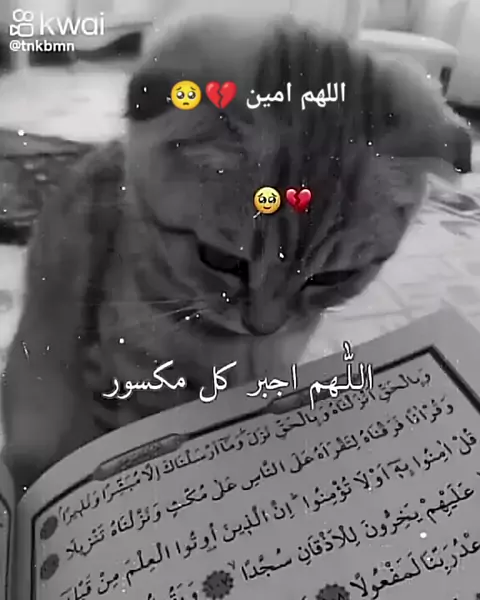 kwai
@tnkbmn
اللهم امين 💔🥺
🥺💔
اللّٰهم اجبر كل مكسور
وَبِالْحَقِّ اَنْزَلْنَاهُ وَبِالْحَقِّ نَزَلَ وَمَا اَرْسَلْنَاكَ اِلَّا مُبَشِّرًا وَنَذِيرًا
وَقُرْاٰنًا فَرَقْنَاهُ لِتَقْرَاَهُ عَلَى النَّاسِ عَلٰى مُكْثٍ وَنَزَّلْنَاهُ تَنْزِيلًا
قُلْ اٰمِنُوا بِهِ اَوْ لَا تُؤْمِنُوا اِنَّ الَّذِينَ اُوتُوا الْعِلْمَ مِنْ قَبْلِ
عَلَيْهِمْ يَخِرُّونَ لِلْاَذْقَانِ سُجَّدًا
رَبِّنَا لَمَفْعُولًا